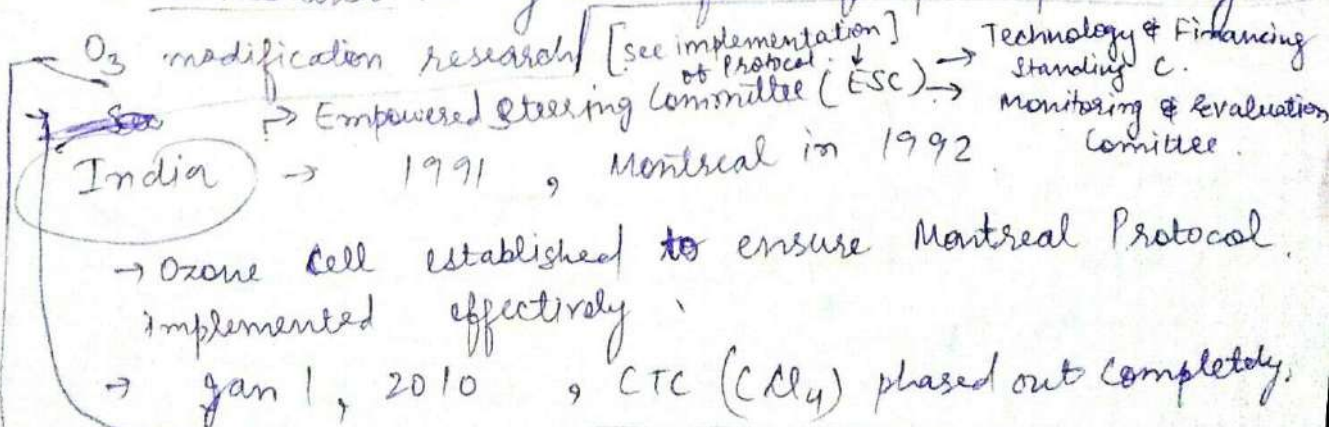 O3 modification research [see implementation of Protocol.]
→ Empowered Steering Committee (ESC) → Technology & Financing Standing C.
→ Monitoring & Evaluation Comittee.
India → 1991 , Montreal in 1992
→ Ozone Cell established to ensure Montreal Protocol
implemented effectively.
→ Jan 1, 2010 , CTC (CCl4) phased out completely.